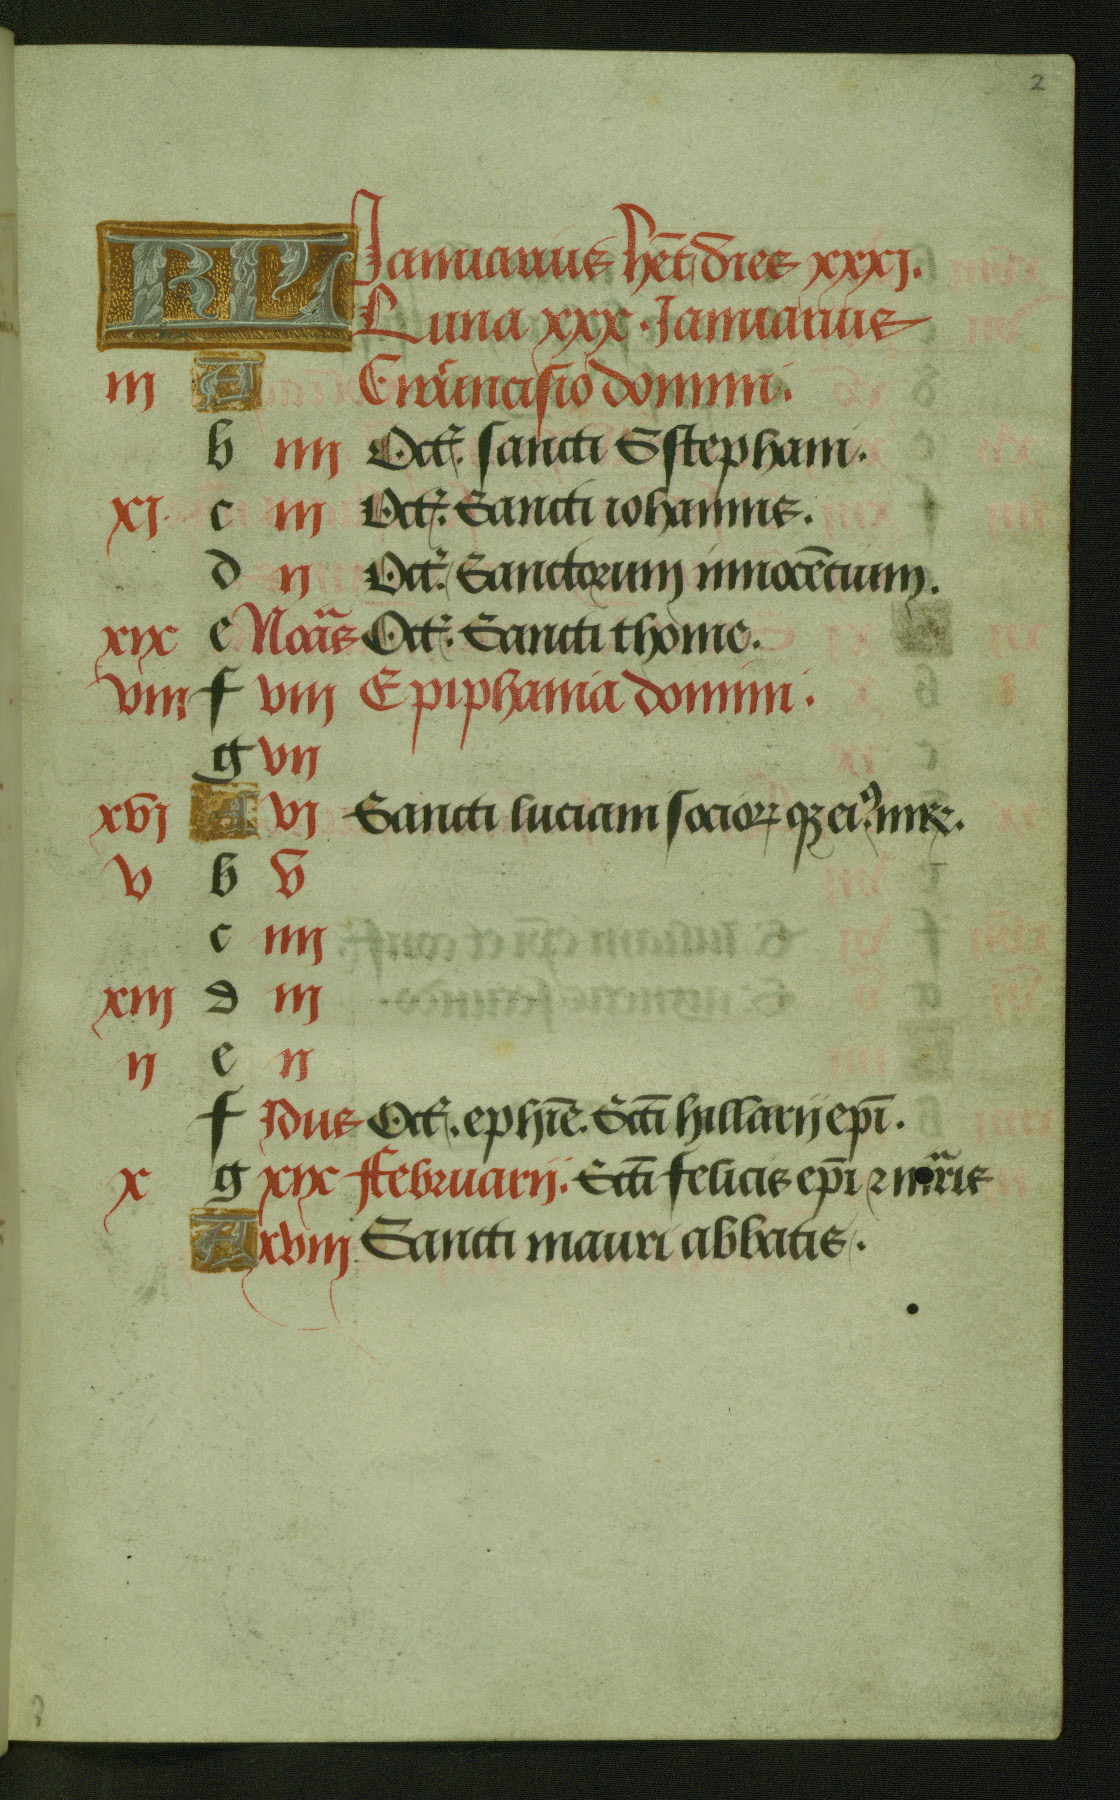 2
KL Januarius hēt dies xxxj.
Luna xxx. Januarius
iij A Circuncisio domini.
b iiij Oct. sancti Sstephani.
xj. c iij Oct. Sancti iohannis.
d ij Oct. Sanctorum innocētium.
xix e Nonās Oct. Sancti thome.
viij f viij Epiphania domini.
g vij
xvj A vj Sancti luciani socioꝝ qꝫ eiꝰ.
v b v
c iiij
xiij d iij
ij e ij
f Idus Oct. ephīe. Sctī hillarij epī.
x g xix ffebruarij. Sctī felicis epī ⁊ mr̄is
A xviij Sancti mauri abbatis.